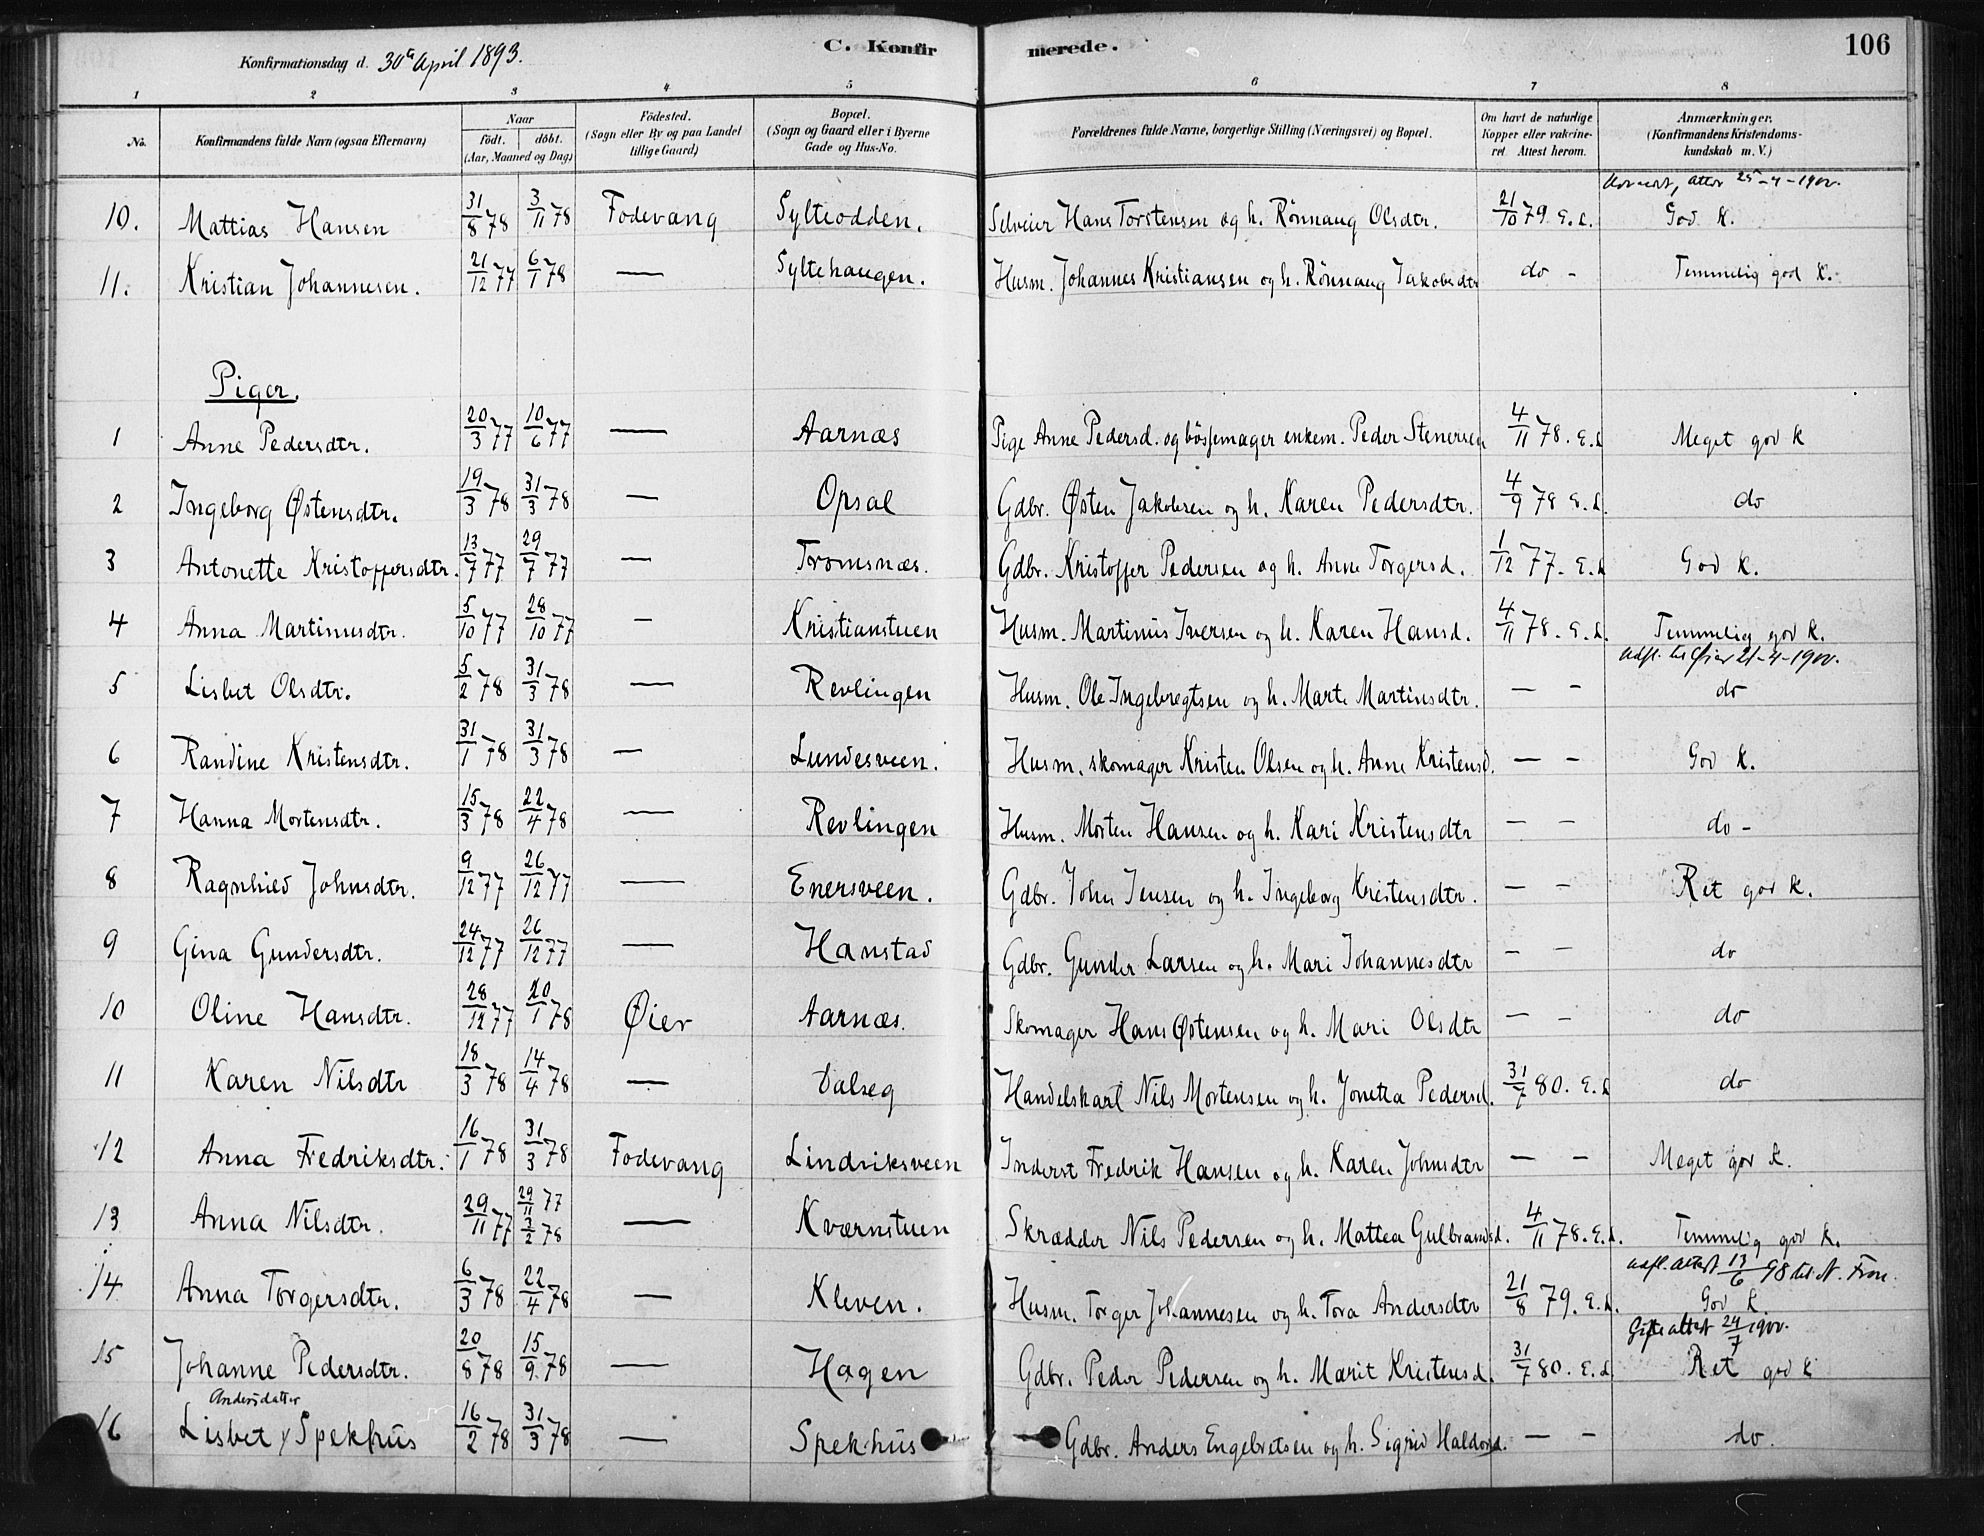 Konfirmationsdag d. 30te April 1893.
C. Konfirmerede.
106
1 2 3 4 5 6 7 8
No.
Konfirmandens fulde Navn (ogsaa Efternavn)
Naar
födt. döbt.
(Aar, Maaned og Dag)
Födested.
(Sogn eller By og paa Landet
tillige Gaard)
Bopæl.
(Sogn og Gaard eller i Byerne
Gade og Hus-No.
Forældrenes fulde Navne, borgerlige Stilling (Næringsvei) og Bopæl.
Om havt de naturlige
Kopper eller vakcine-
ret Attest herom.
Anmærkninger.
(Konfirmandens Kristendoms-
kundskab m. V.)
attest 25-4-1900.
10. Mattias Hansen 31/8 78 3/11 78 Fodevang Sylteodden. Selveier Hans Torstensen og h. Rönnaug Olsdtr. 21/10 79. E.L. God K.
11. Kristian Johannesen. 21/12 77 6/1 78 — Syltehaugen. Husm. Johannes Kristiansen og h. Rönnaug Jakobsdtr do - Temmelig god K.
Piger.
1 Anne Pedersdtr. 20/3 77 10/6 77 — Aarnæs Pige Anne Pedersd. og bössemager enkem. Peder Stenersen 4/11 78. E.L Meget god K
2 Ingeborg Østensdtr. 19/3 78 31/3 78 — Opsal Gdbr. Østen Jakobsen og h. Karen Pedersdtr. 4/9 78 E.L. do
3 Antonette Kristoffersdtr. 13/7 77 29/7 77 — Tromsnæs. Gdbr. Kristoffer Pedersen og h. Anne Torgersd. 1/12 77. E.L God K.
4 Anna Martinusdtr. 5/10 77 28/10 77 — Kristianstuen Husm. Martinus Iversen og h. Karen Hansd. 4/11 78. E.L. Temmelig god K.
udfl. til Øier 21-4-1900.
5 Lisbet Olsdtr. 5/2 78 31/3 78 — Revlingen Husm. Ole Ingebregtsen og h. Marte Martinsdtr. — - do
6 Randine Kristensdtr. 31/1 78 31/3 78 — Lundesveen. Husm. skomager Kristen Olsen og h. Anne Kristensd. — - God K.
7 Hanna Mortensdtr. 15/3 78 22/4 78 — Revlingen Husm. Morten Hansen og h. Kari Kristensdtr — - do -
8 Ragnhild Johnsdtr. 9/12 77 26/12 77 — Enersveen. Gdbr. John Jensen og h. Ingeborg Kristensdtr. — - Ret god K.
9 Gina Gundersdtr. 24/12 77 26/12 77 — Hanstad Gdbr. Gunder Larsen og h. Mari Johannesdtr — - do
10 Oline Hansdtr. 28/12 77 20/1 78 Øier Aarnæs. Skomager Hans Østensen og h. Mari Olsdtr — - do
11 Karen Nilsdtr 18/3 78 14/4 78 — Dalseg Handelskarl Nils Mortensen og h. Jonetta Pedersd. 31/7 80. E.L do
12 Anna Fredriksdtr. 16/1 78 31/3 78 Fodevang Lindriksveen Inderst Fredrik Hansen og h. Karen Johnsdtr — - Meget god K.
13 Anna Nilsdtr. 29/11 77 29/11 77 3/2 78 — Kværnstuen Skrædder Nils Pedersen og h. Mattea Gulbrandsd. 4/11 78. E.L. Temmelig god K.
udfl. attest 13/6 98 til N. Fron.
14 Anna Torgersdtr. 6/3 78 22/4 78 — Kleven. Husm. Torger Johannesen og h. Tora Andersdtr 21/8 79. E.L. God K.
Gifte attest 24/7 1900.
15 Johanne Pedersdtr. 20/8 78 15/9 78 — Hagen Gdbr. Peder Pedersen og h. Marit Kristensd. 31/7 80. E.L Ret god K
Andersdatter
16 Lisbet Spekhus 16/2 78 31/3 78 — Spekhus Gdbr. Anders Engebretsen og h. Sigrid Haldorsd. — - do.